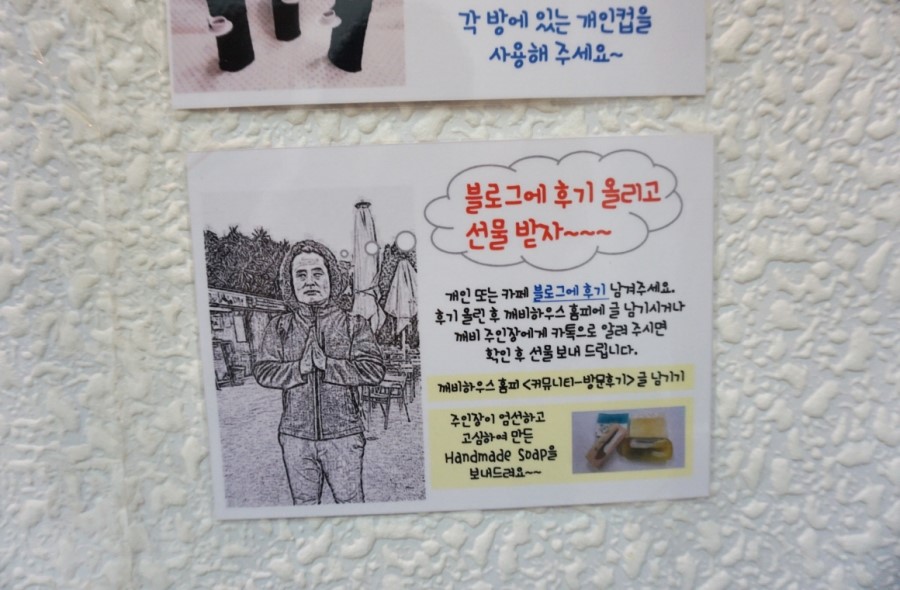 각 방에 있는 개인컵을
사용해 주세요~
블로그에 후기 올리고
선물 받자~~~
개인 또는 카페 블로그에 후기 남겨주세요.
후기 올린 후 깨비하우스 홈피에 글 남기시거나
깨비 주인장에게 카톡으로 알려 주시면
확인 후 선물 보내 드립니다.
깨비하우스 홈피 <커뮤니티-방문후기> 글 남기기
주인장이 엄선하고
고심하여 만든
Handmade Soap을
보내드려요~~